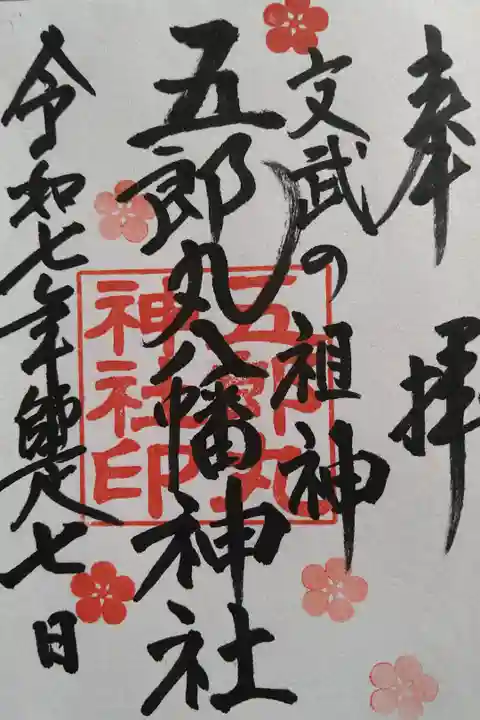 奉拝
文武の祖神
五郎丸八幡神社
令和七年師走七日
五郎丸
神社印